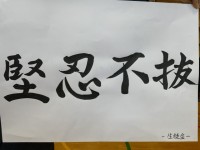 堅忍不抜